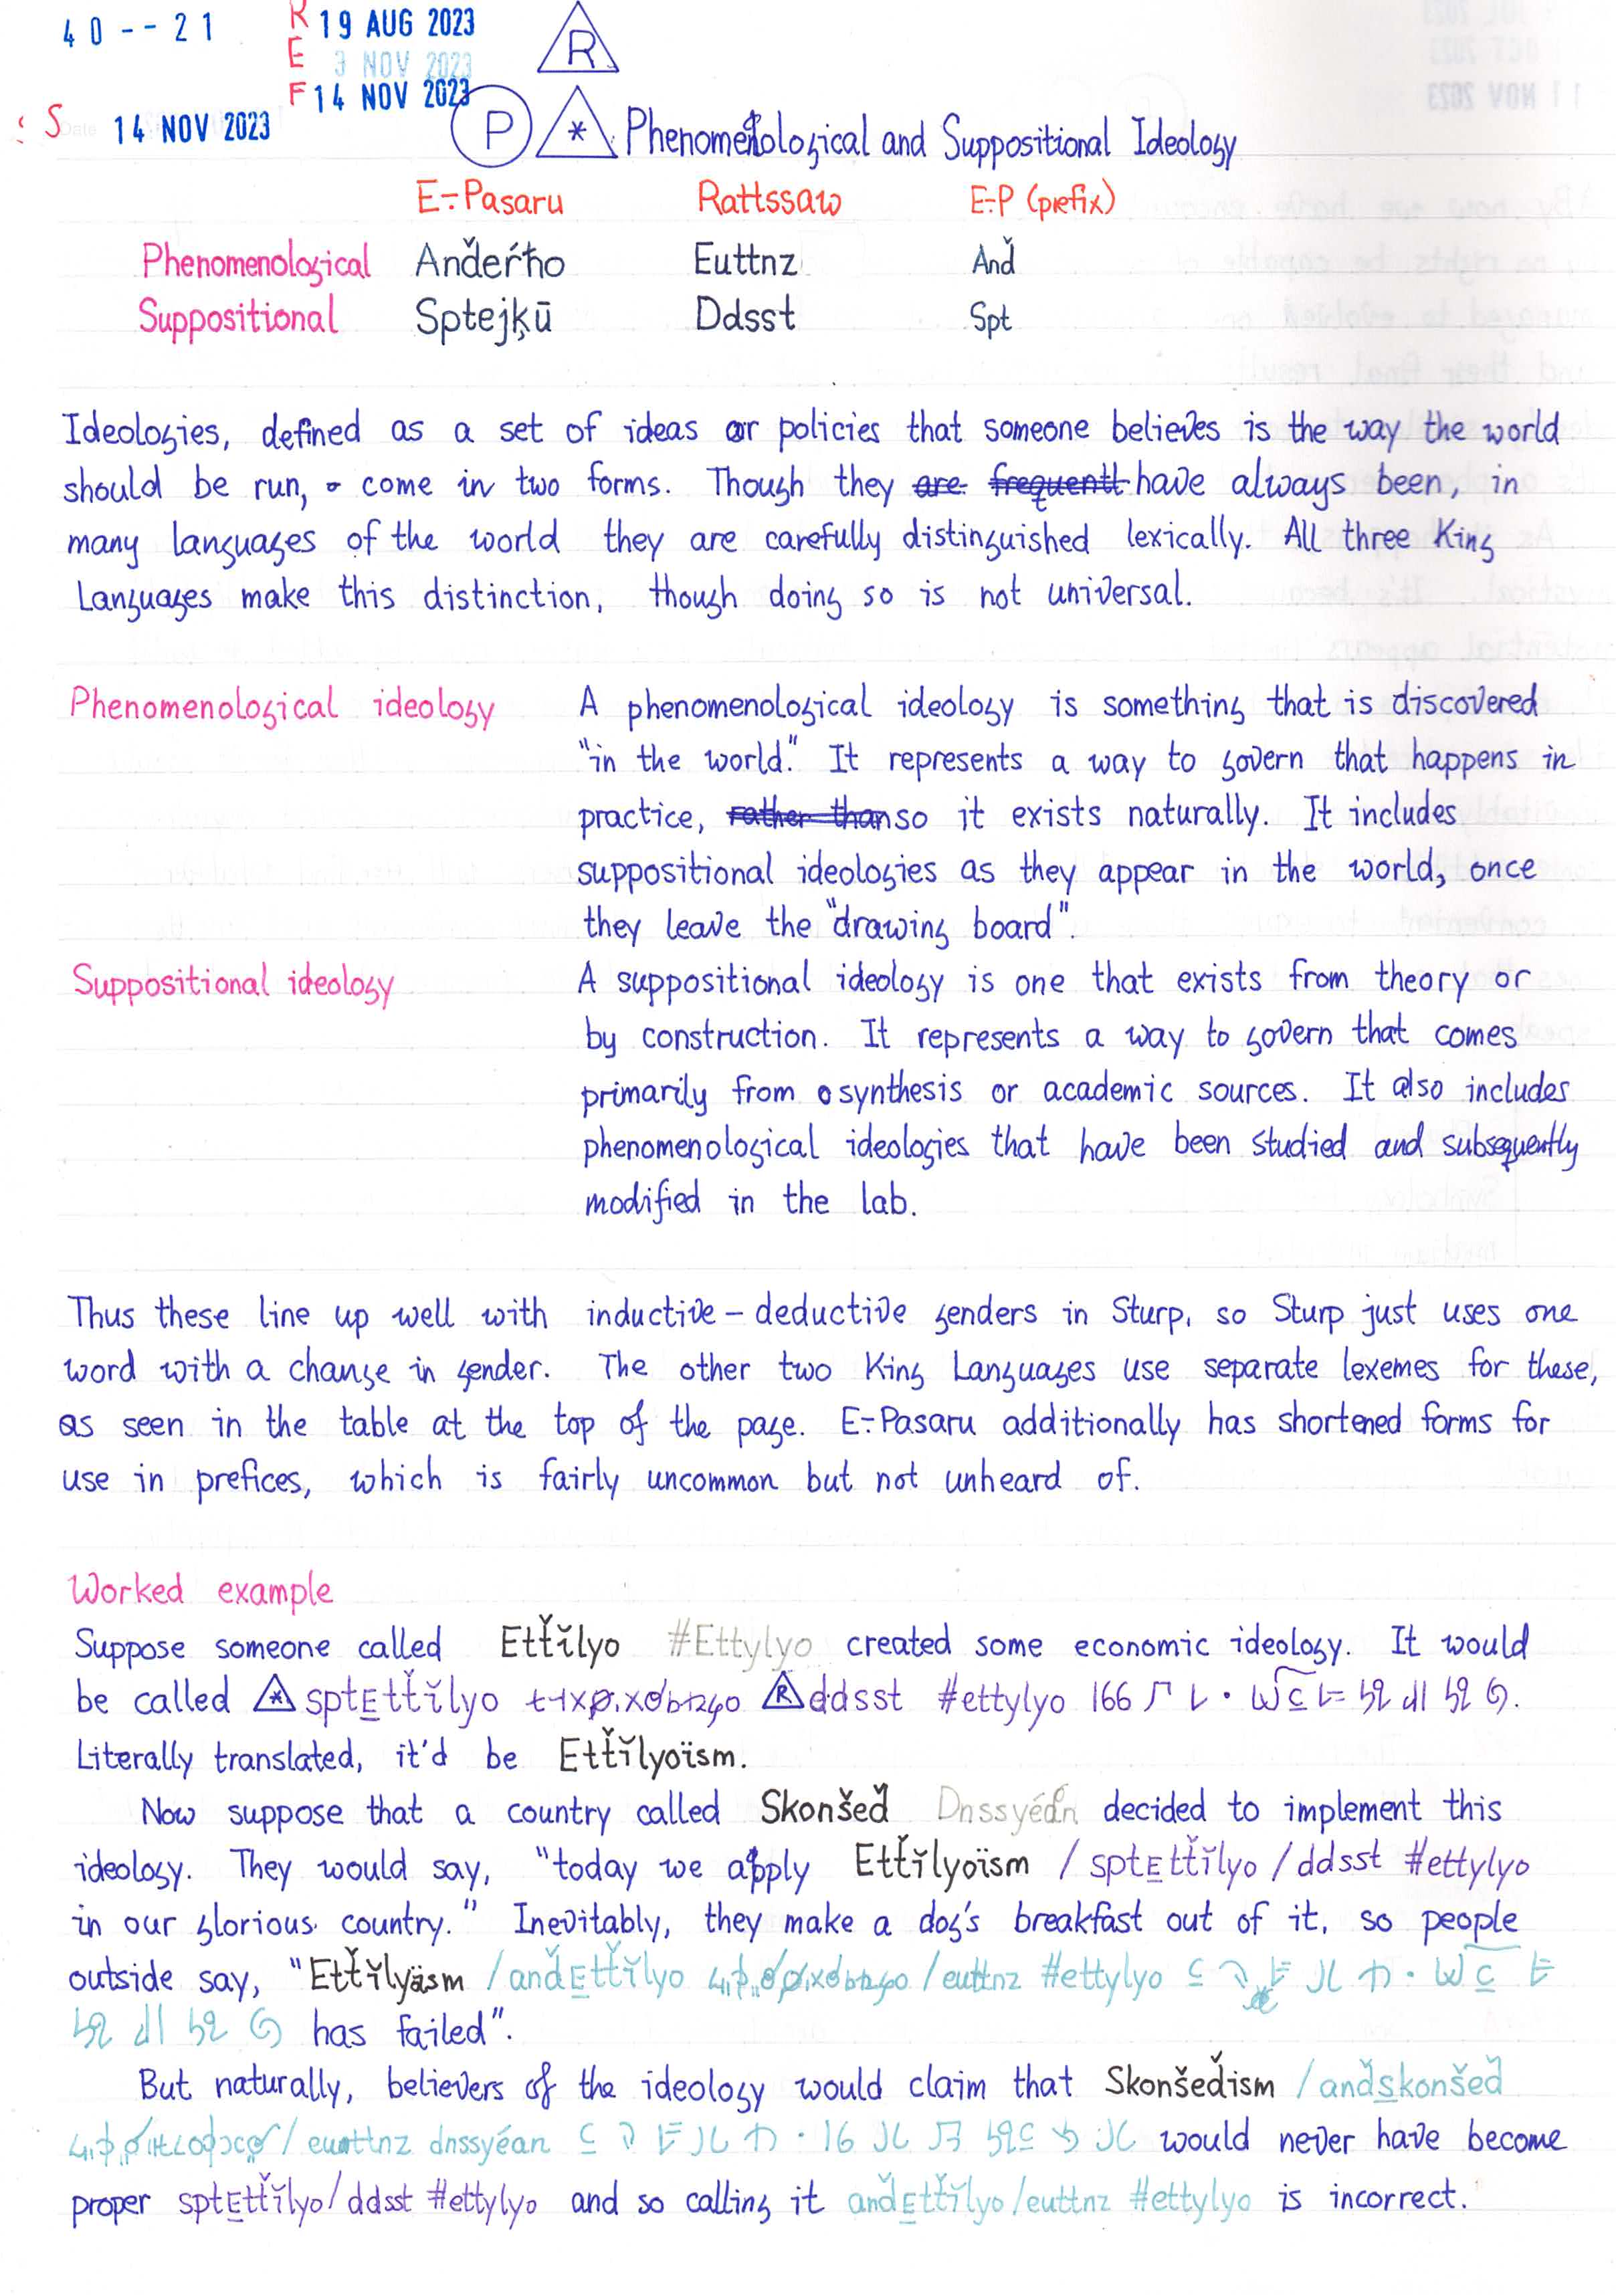 40--21
REF
19 AUG 2023
3 NOV 2023
14 NOV 2023
S 14 NOV 2023
R
P * Phenomenological and Suppositional Ideology
E÷Pasaru Rattssaw E÷P (prefix)
Phenomenological Anďeŕħo Euttnz Anď
Suppositional Sptejķū Ddsst Spt
Ideologies, defined as a set of ideas or policies that someone believes is the way the world
should be run, come in two forms. Though they are frequentl have always been, in
many languages of the world they are carefully distinguished lexically. All three King
Languages make this distinction, though doing so is not universal.
Phenomenological ideology A phenomenological ideology is something that is discovered
"in the world." It represents a way to govern that happens in
practice, rather than so it exists naturally. It includes
suppositional ideologies as they appear in the world, once
they leave the "drawing board".
Suppositional ideology A suppositional ideology is one that exists from theory or
by construction. It represents a way to govern that comes
primarily from synthesis or academic sources. It also includes
phenomenological ideologies that have been studied and subsequently
modified in the lab.
Thus these line up well with inductive-deductive genders in Sturp, so Sturp just uses one
word with a change in gender. The other two King Languages use separate lexemes for these,
as seen in the table at the top of the page. E÷Pasaru additionally has shortened forms for
use in prefices, which is fairly uncommon but not unheard of.
Worked example
Suppose someone called Etťǐlyo #Ettylyo created some economic ideology. It would
be called * sptEtťǐlyo R ddsst #ettylyo
Literally translated, it'd be Etťǐlyoïsm.
Now suppose that a country called Skonšeď Dnssyéan decided to implement this
ideology. They would say, "today we apply Etťǐlyoïsm / sptEtťǐlyo / ddsst #ettylyo
in our glorious country." Inevitably, they make a dog's breakfast out of it, so people
outside say, "Etťǐlyäsm / anďEtťǐlyo / euttnz #ettylyo
has failed".
But naturally, believers of the ideology would claim that Skonšeďism / anďskonšeď
/ euttnz dnssyéan would never have become
proper sptEtťǐlyo / ddsst #ettylyo and so calling it anďEtťǐlyo / euttnz #ettylyo is incorrect.